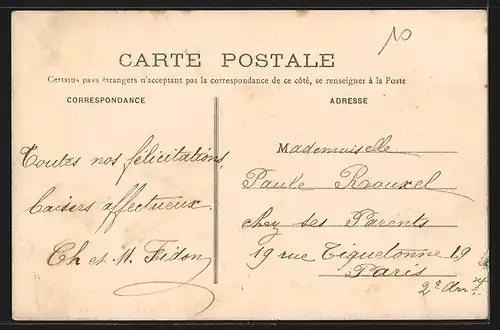 10
CARTE POSTALE
Certains pays étrangers n'acceptant pas la correspondance de ce côté, se renseigner à la Poste
CORRESPONDANCE
Toutes nos félicitations,
baisers affectueux.
Ch et M. Fidon
ADRESSE
Mademoiselle
Paule Rouxel
chez ses Parents
19 rue Tiquetonne 19
Paris
2e Arr